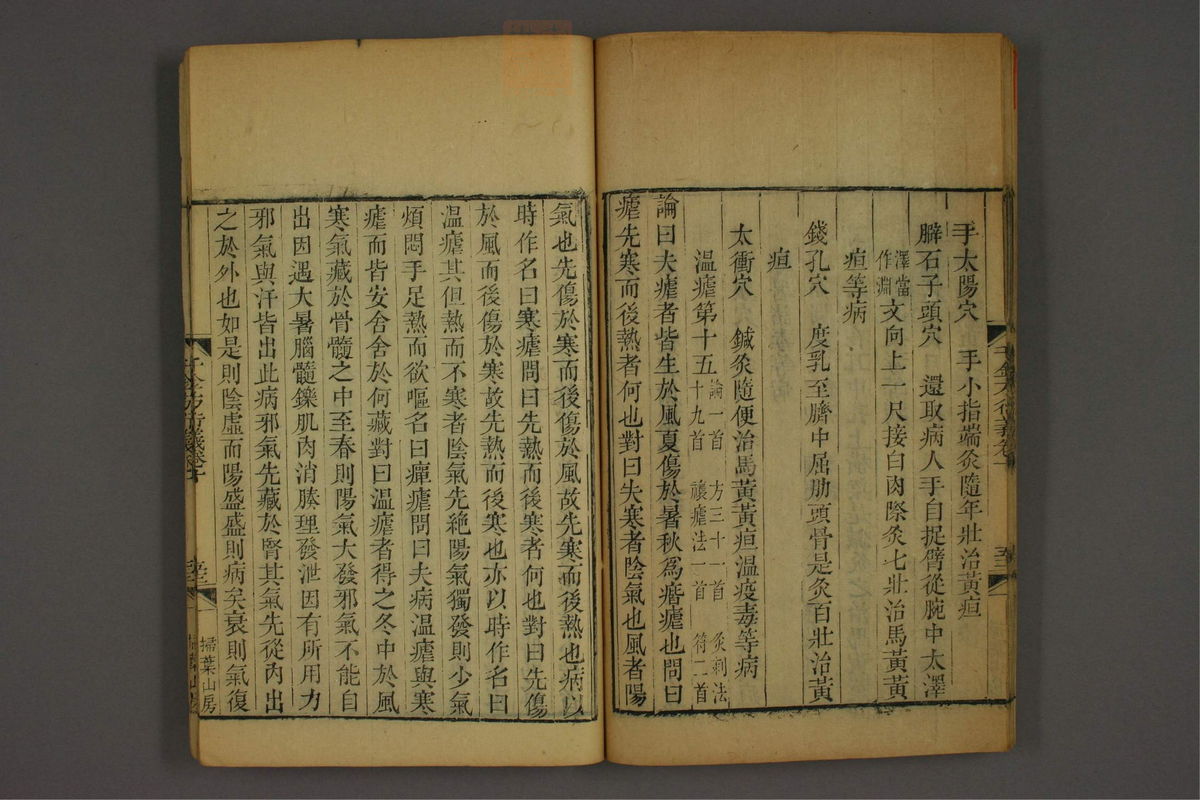 手太陽穴　手小指端灸隨年壯治黃疸
臂石子頭穴　還取病人手自捉臂從腕中太澤
澤當作淵文向上一尺接白肉際灸七壯治馬黃黃
疸等病
錢孔穴　度乳至臍中屈肋頭骨是灸百壯治黃
疸
太衝穴　鍼灸隨便治馬黃黃疸溫疫毒等病
溫瘧第十五論一首　方三十一首　灸刺法十九首　禳瘧法一首　符二首
論曰夫瘧者皆生於風夏傷於暑秋為痎瘧也問曰
瘧先寒而後熱者何也對曰夫寒者陰氣也風者陽
氣也先傷於寒而後傷於風故先寒而後熱也病以
時作名曰寒瘧問曰先熱而後寒者何也對曰先傷
於風而後傷於寒故先熱而後寒也亦以時作名曰
溫瘧其但熱而不寒者陰氣先絕陽氣獨發則少氣
煩悶手足熱而欲嘔名曰癉瘧問曰夫病溫瘧與寒
瘧而皆安舍舍於何藏對曰溫瘧者得之冬中於風
寒氣藏於骨髓之中至春則陽氣大發邪氣不能自
出因遇大暑腦髓鑠肌肉消腠理發泄因有所用力
邪氣與汗皆出此病邪氣先藏於腎其氣先從內出
之於外也如是則陰虛而陽盛盛則病矣衰則氣復
掃葉山房